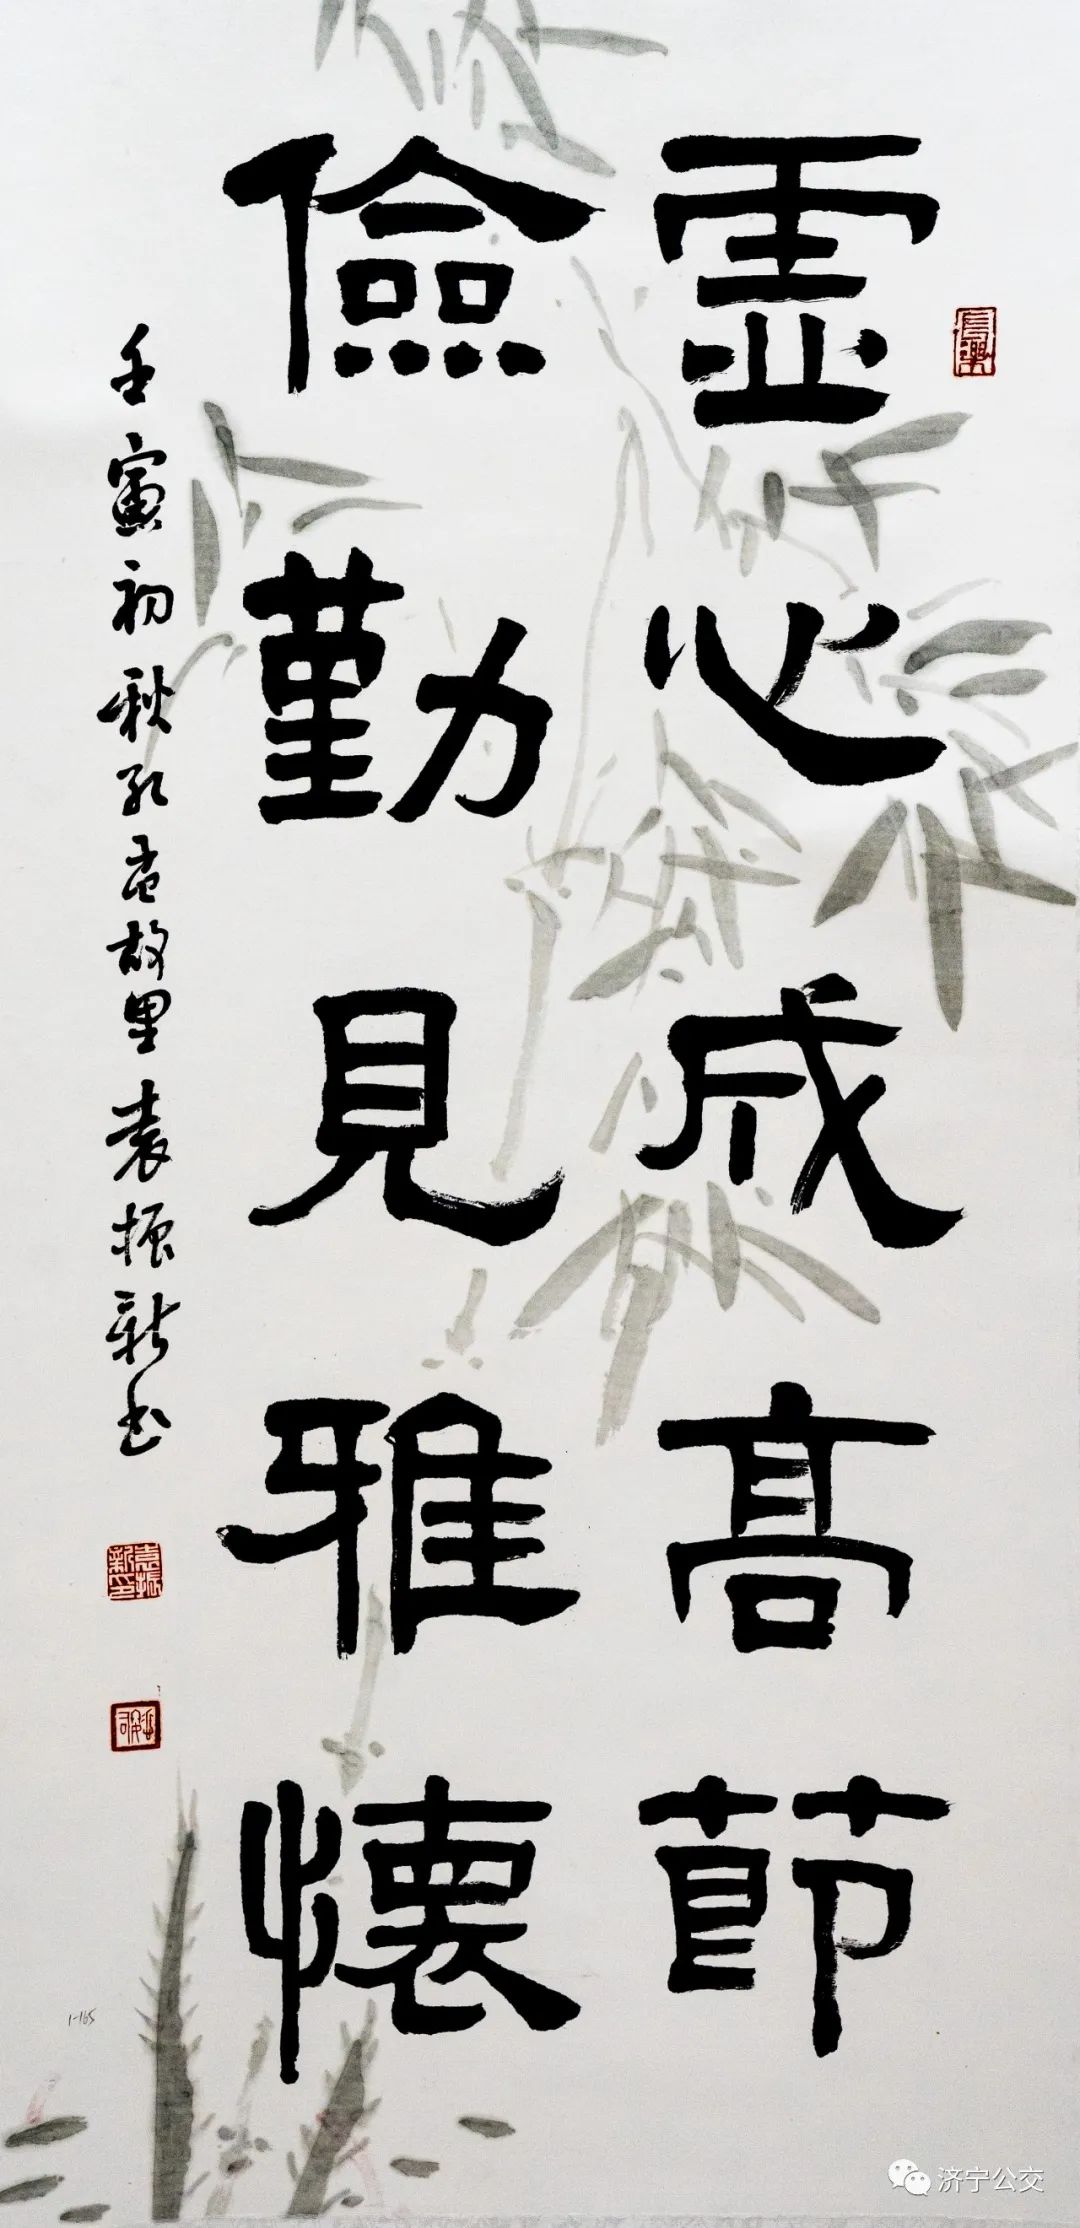 虛心成高節
儉勤見雅懷
壬寅初秋孔孟故里袁振新书
長樂
袁振新印
1-165
济宁公交